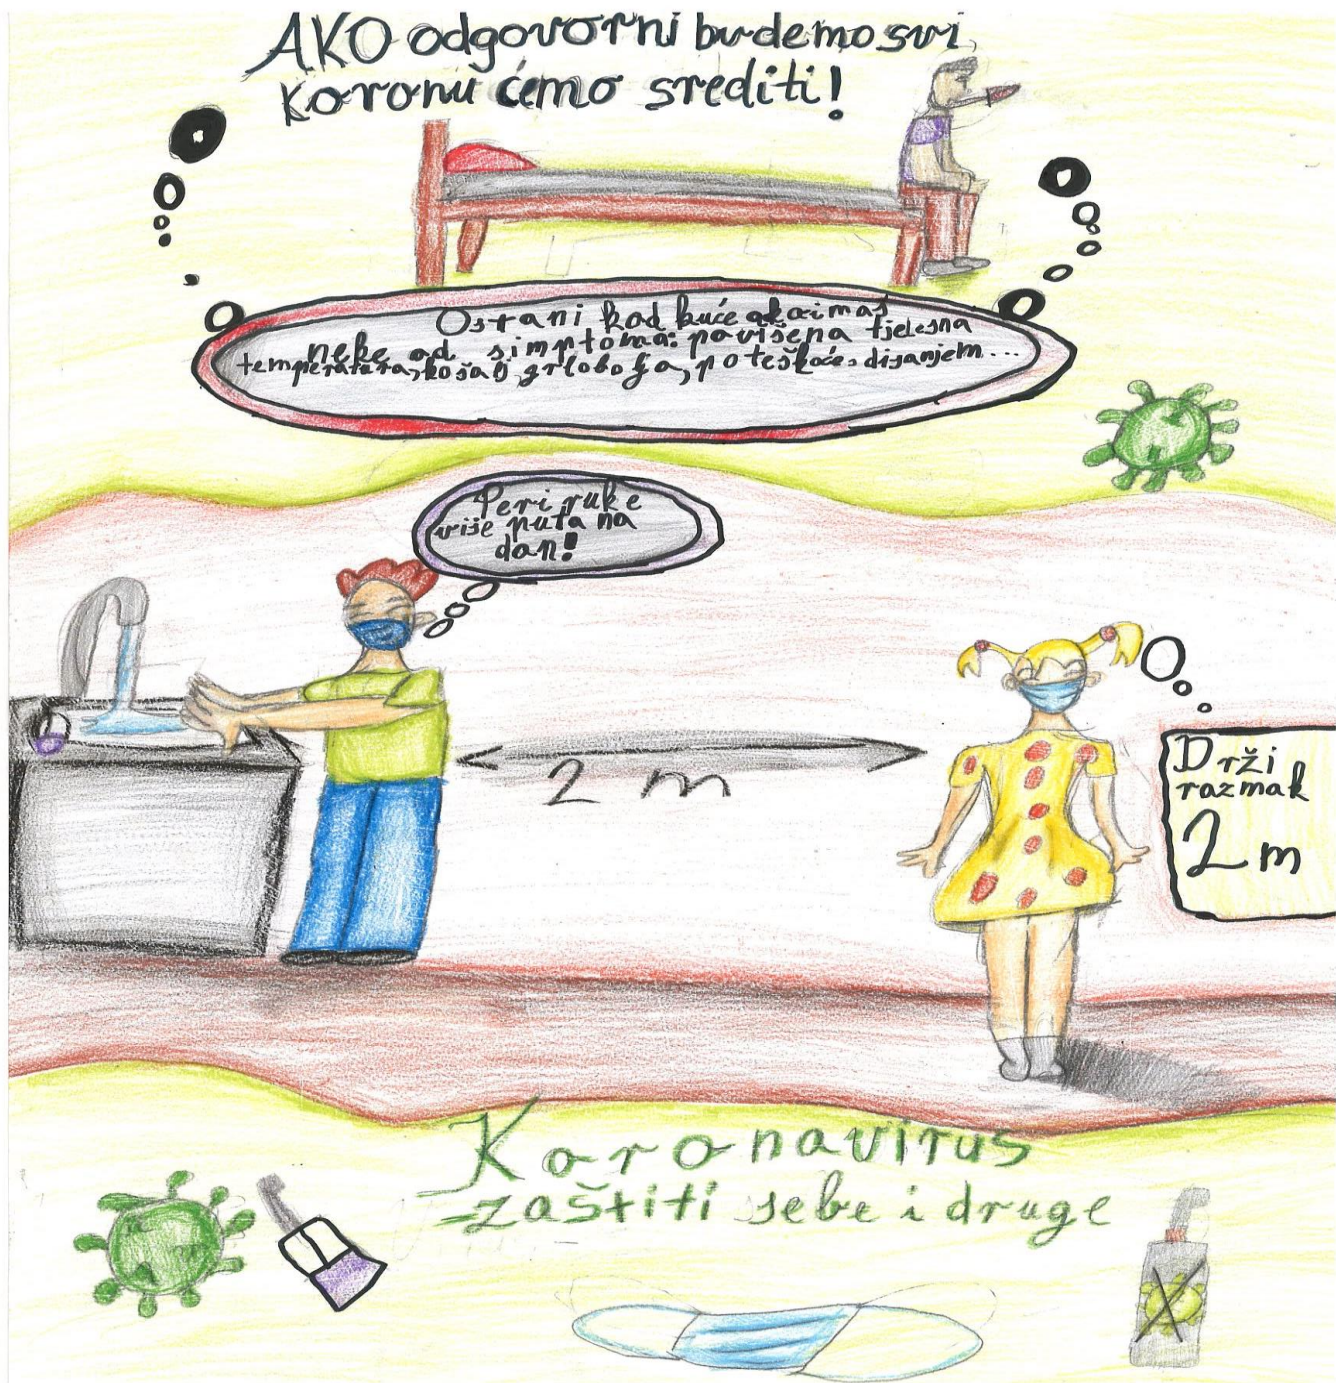 AKO odgovorni budemo svi,
koronu ćemo srediti!
Ostani kod kuće ako imaš
neke od simptoma: povišena tjelesna
temperatura, kašalj, grlobolja, poteškoće s disanjem...
Peri ruke
više puta na
dan!
2 m
Drži
razmak
2 m
Koronavirus
-zaštiti sebe i druge